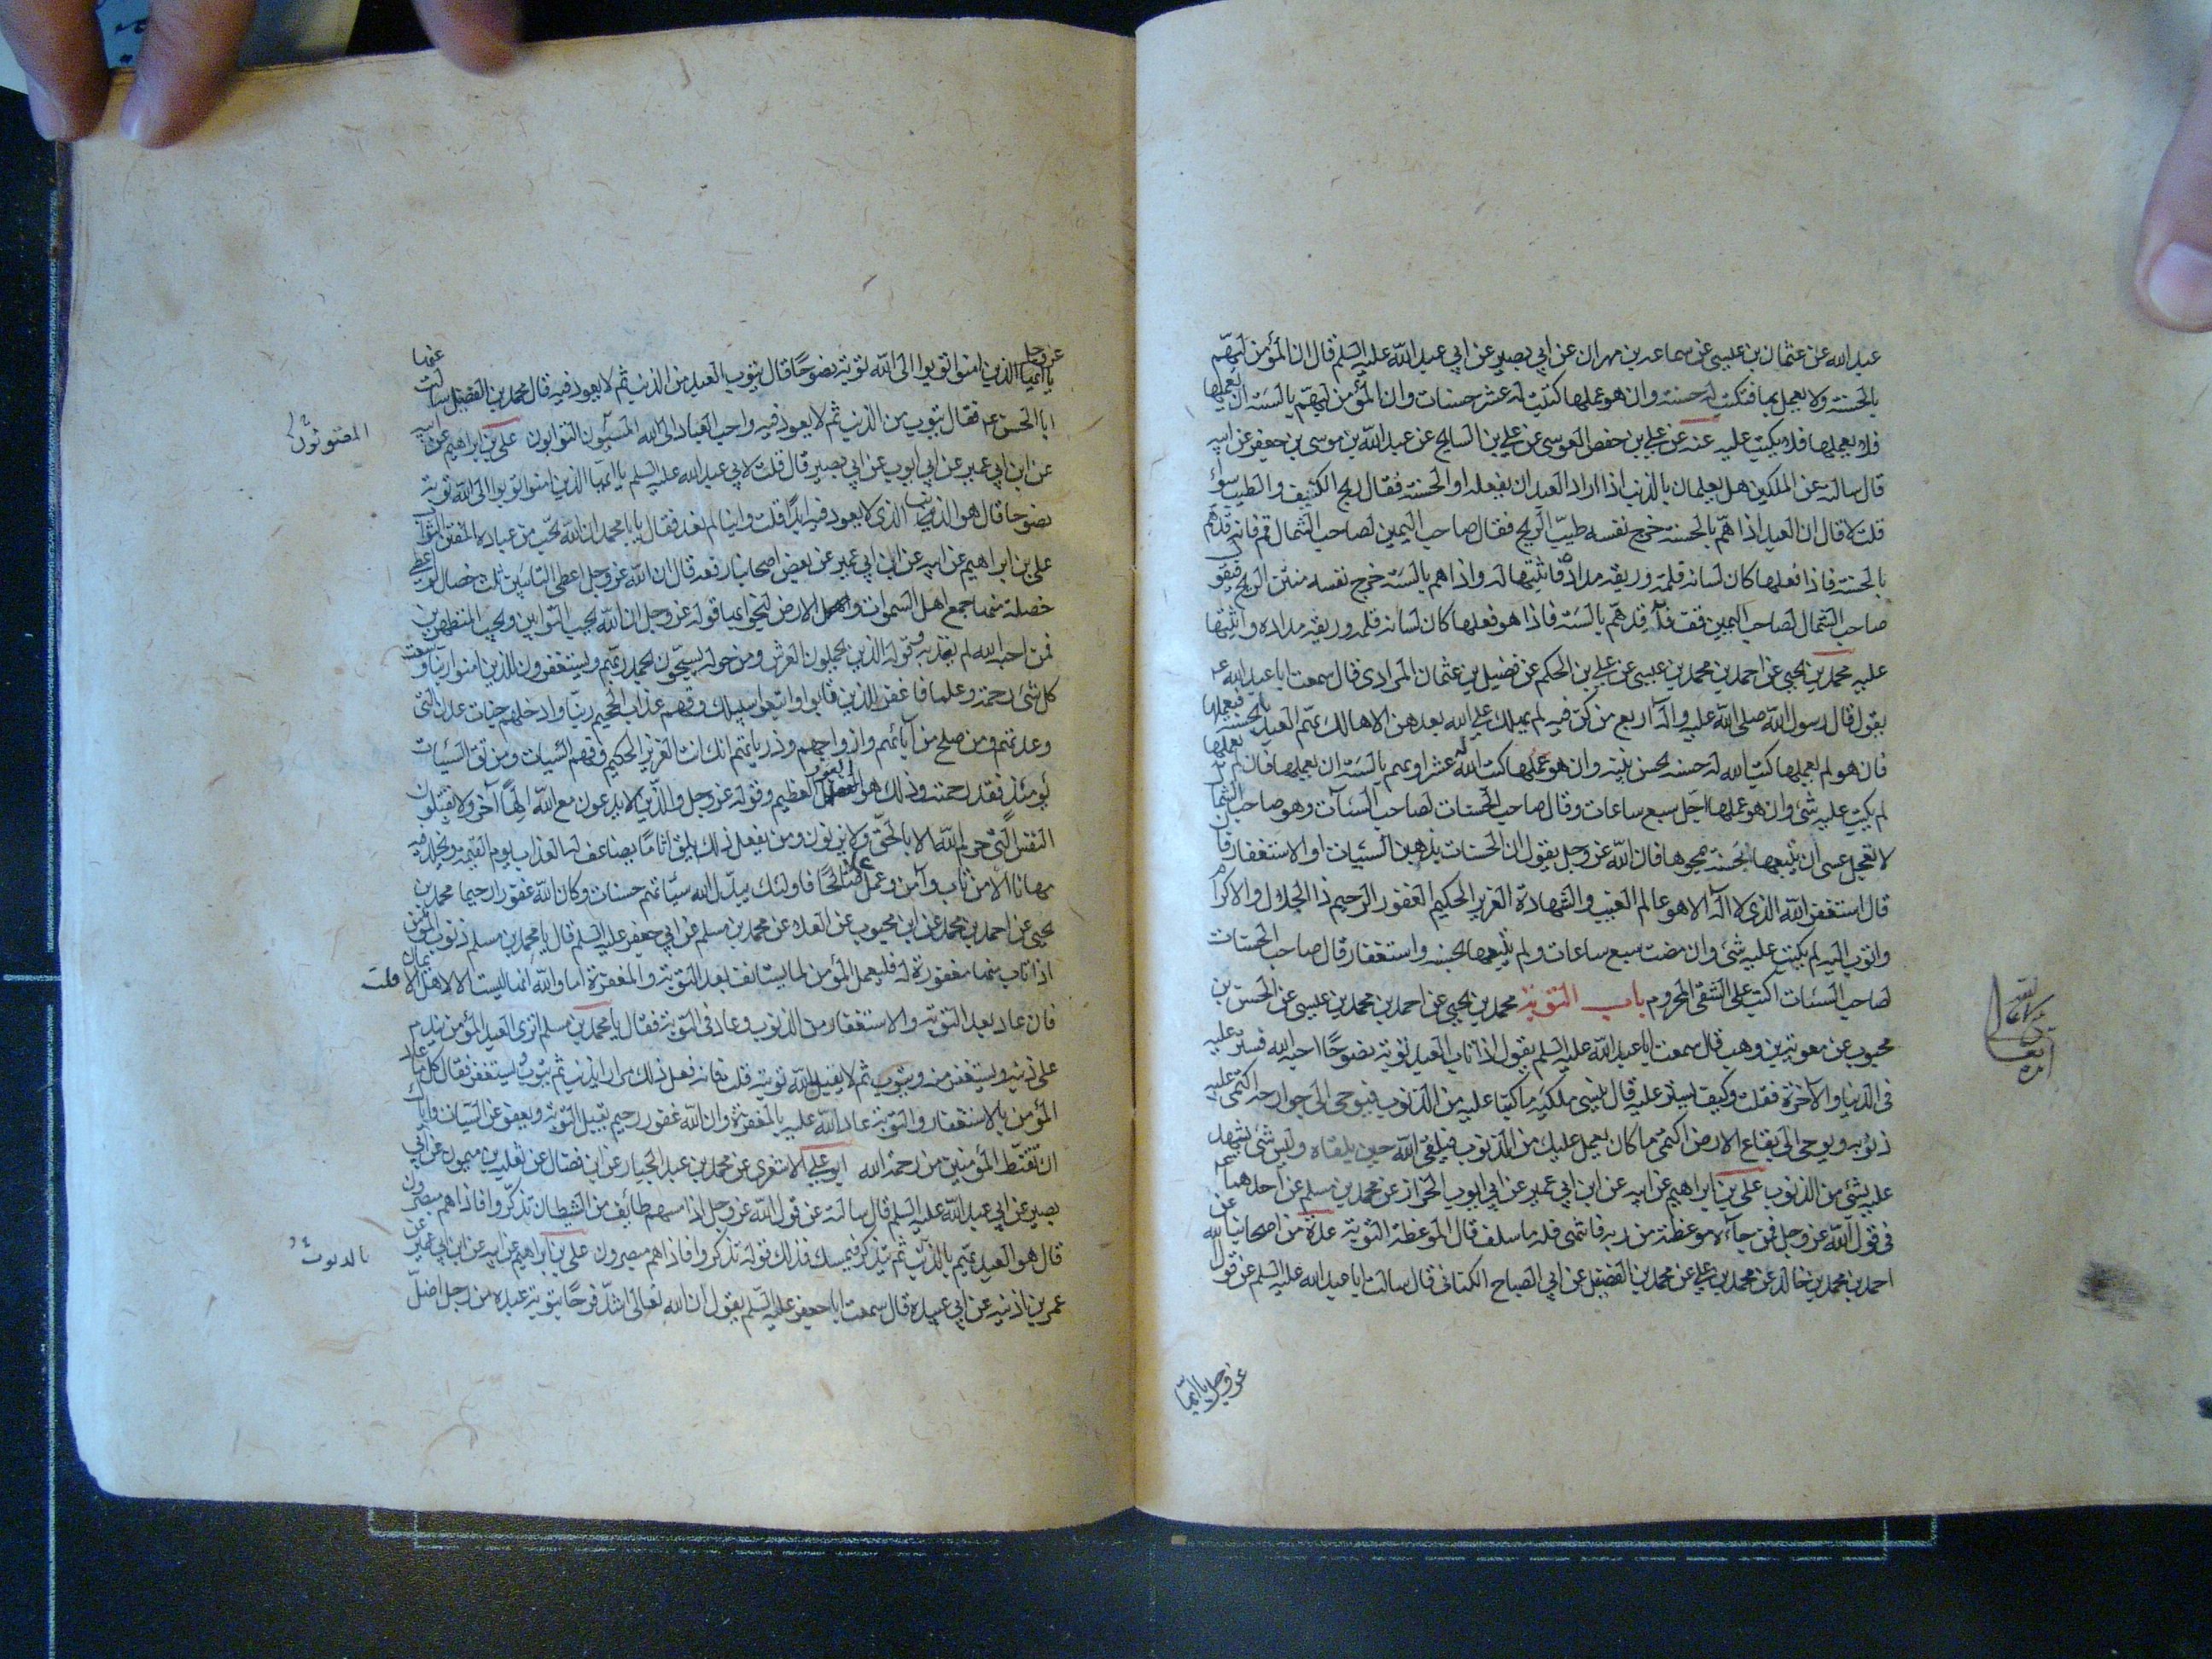 عبد الله عن عثمان بن عيسى عن سماعه بن مهران عن ابى بصير عن ابى عبد الله عليه السلم قال ان المؤمن ليهمّ
بالحسنة ولا يعمل بها فتكتب له حسنة وان هو عملها كتبت له عشر حسنات وان المؤمن ليهمّ بالسيئة ان يعملها
فلا يعملها فلا يكتب عليه عنه عن على بن حفص العوسى عن على بن السايح عن عبد الله بن موسى بن جعفر عن ابيه
قال سالته عن الملكين هل يعلمان بالذنب اذا اراد العبد ان يفعله او الحسنة فقال ريح الكنيف والطيب سواء
قلت لا قال ان العبد اذا همّ بالحسنة خرج نفسه طيّب الريح فقال صاحب اليمين لصاحب الشمال قم فانه قد همّ
بالحسنة فاذا فعلها كان لسانه قلمه وريقه مداده فاثبتها له واذا هم بالسيئة خرج نفسه منتن الريح فيقول
صاحب الشمال لصاحب اليمين قف فانه قد همّ بالسيئة فاذا هو فعلها كان لسانه قلمه وريقه مداده واثبتها
عليه محمد بن يحيى عن احمد بن محمد بن عيسى عن على بن الحكم عن فضيل بن عثمان المرادى قال سمعت ابا عبد الله ع
يقول قال رسول الله صلى الله عليه وآله اربع من كنّ فيه لم يهلك على الله بعدهن الا هالك يهمّ العبد بالحسنة فيعملها
فان هو لم يعملها كتب الله له حسنة بحسن نيته وان هو عملها كتب الله له عشرا ويهم بالسيئة ان يعملها فان لم يعملها
لم يكتب عليه شئ وان هو عملها اجّل سبع ساعات وقال صاحب الحسنات لصاحب السيئات وهو صاحب الشمال
لا تعجل عسى ان يتبعها بحسنة تمحوها فان الله عز وجل يقول ان الحسنات يذهبن السيئات او الاستغفار فان
قال استغفر الله الذى لا اله الا هو عالم الغيب والشهادة العزيز الحكيم الغفور الرحيم ذا الجلال والاكرام
واتوب اليه لم يكتب عليه شئ وان مضت سبع ساعات ولم يتبعها بحسنة واستغفار قال صاحب الحسنات
لصاحب السيئات اكتب على الشقى المحروم باب التوبة محمد بن يحيى عن احمد بن محمد بن عيسى عن الحسن بن
محبوب عن معوية بن وهب قال سمعت ابا عبد الله عليه السلم يقول اذا تاب العبد توبة نصوحًا احبه الله فستر عليه
فى الدنيا والآخرة فقلت وكيف يستر عليه قال ينسى ملكيه ما كتبا عليه من الذنوب فيوحى الى جوارحه اكتمى عليه
ذنوبه ويوحى الى بقاع الارض اكتمى ما كان يعمل عليك من الذنوب فيلقى الله حين يلقاه وليس شئ يشهد
عليه بشئ من الذنوب على بن ابراهيم عن ابيه عن ابن ابى عمير عن ابى ايوب الخزاز عن محمد بن مسلم عن احدهما ع
فى قول الله عز وجل فمن جآءه موعظة من ربه فانتهى فله ما سلف قال الموعظة التوبة عدة من اصحابنا عن
احمد بن محمد بن خالد عن محمد بن على عن محمد بن الفضيل عن ابى الصباح الكنانى قال سالت ابا عبد الله عليه السلم عن قول الله
عز وجل يا ايها
عز وجل
يا ايها الذين امنوا توبوا الى الله توبة نصوحًا قال يتوب العبد من الذنب ثم لا يعود فيه قال محمد بن الفضيل سالت عنها
ابا الحسن ع فقال يتوب من الذنب ثم لا يعود فيه واحب العباد الى الله المنيبون التوابون على بن ابراهيم عن ابيه
المفتونون
عن ابن ابى عمير عن ابى ايوب عن ابى بصير قال قلت لابى عبد الله عليه السلم يا ايها الذين امنوا توبوا الى الله توبة
نصوحا قال هو الذنب الذى لا يعود فيه ابدًا قلت واينا لم يعد فقال يا با محمد ان الله يحب من عباده المفتن التواب
على بن ابراهيم عن ابيه عن ابن ابى عمير عن بعض اصحابنا رفعه قال ان الله عز وجل اعطى التائبين ثلث خصال لو اعطى
خصلة منها جميع اهل السموات والارض لنجوا بها قوله عز وجل ان الله يحب التوابين ويحب المتطهرين
فمن احبه الله لم يعذبه وقوله الذين يحملون العرش ومن حوله يسبّحون بحمد ربهم ويستغفرون للذين امنوا ربنا وسعت
كل شئ رحمة وعلما فاغفر للذين تابوا واتبعوا سبيلك وقهم عذاب الجحيم ربنا وادخلهم جنات عدن التى
وعدتهم ومن صلح من آبائهم وازواجهم وذرياتهم انك انت العزيز الحكيم وقهم السيئات ومن تق السيئات
يومئذ فقد رحمته وذلك هو الفوز العظيم وقوله عز وجل والذين لا يدعون مع الله الهًا آخر ولا يقتلون
النفس التى حرم الله الا بالحقّ ولا يزنون ومن يفعل ذلك يلق اثامًا يضاعف له العذاب يوم القيمة ويخلد فيه
مهانا الا من تاب وآمن وعمل عملا صالحًا فاولئك يبدّل الله سيّئاتهم حسنات وكان الله غفورا رحيما محمد بن
يحيى عن احمد بن محمد عن ابن محبوب عن العلاء عن محمد بن مسلم عن ابى جعفر عليه السلم قال يا محمد بن مسلم ذنوب المؤمن
اذا تاب منها مغفورة له فليعمل المؤمن لما يستانف بعد التوبة والمغفرة اما والله انها ليست الا لاهل الايمان قلت
فان عاد بعد التوبة والاستغفار من الذنوب وعاد فى التوبة فقال يا محمد بن مسلم اترى العبد المؤمن يندم
على ذنبه ويستغفر منه ويتوب ثم لا يقبل الله توبته قلت فانه فعل ذلك مرارا يذنب ثم يتوب ويستغفر فقال كلما عاد
المؤمن بالاستغفار والتوبة عاد الله عليه بالمغفرة وان الله غفور رحيم يقبل التوبة ويعفو عن السيئات واياك
ان تقنّط المؤمنين من رحمة الله ابو على الاشعرى عن محمد بن عبد الجبار عن ابن فضال عن ثعلبة بن ميمون عن ابى
بصير عن ابى عبد الله عليه السلم قال سالته عن قول الله عز وجل اذا مسهم طائف من الشيطان تذكّروا فاذا هم مبصرون
قال هو العبد يهم بالذنب ثم يتذكر فيمسك فذلك قوله تذكروا فاذا هم مبصرون على بن ابراهيم عن ابيه عن ابن ابى عمير عن
بالدنوب
عمر بن اذينه عن ابى عبيدة قال سمعت ابا جعفر عليه السلم يقول ان الله تعالى اشدّ فرحًا بتوبة عبده من رجل اضلّ